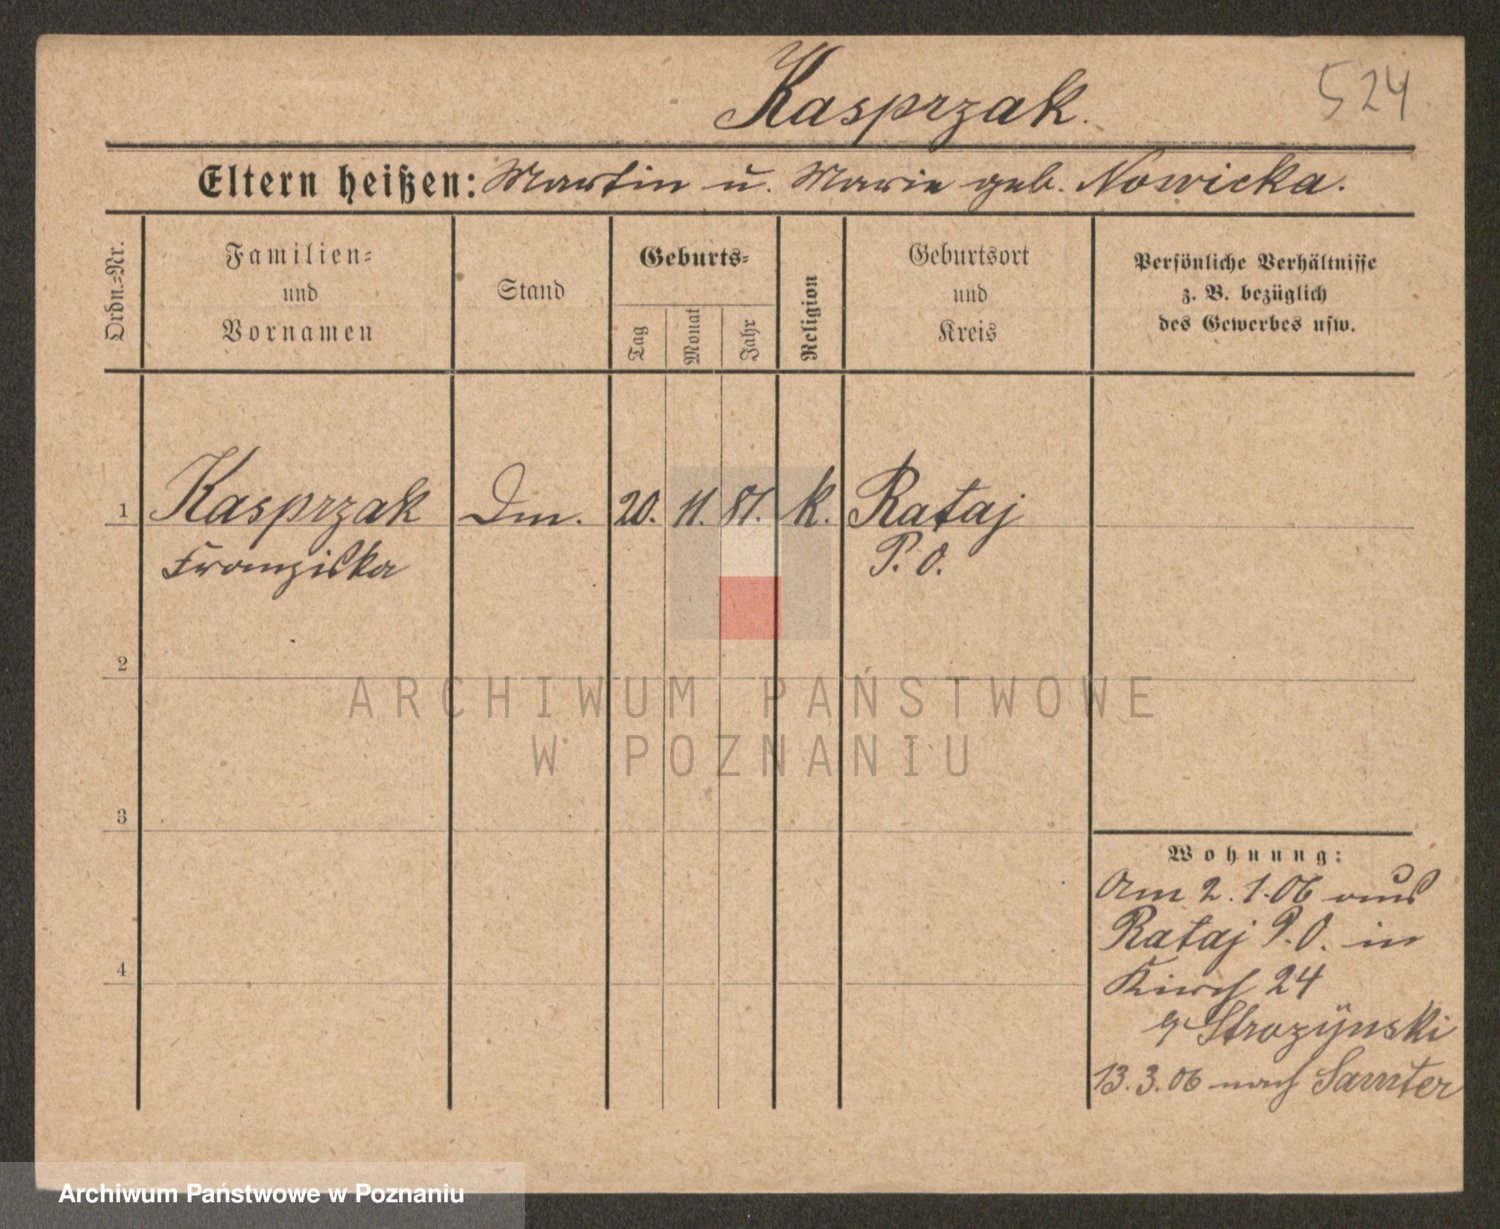 Kasprzak.
524
Eltern heißen: Martin u. Marie geb. Nowicka.
Ordn.=Nr.
Familien=
und
Vornamen
Stand
Geburts=
Tag
Monat
Jahr
Religion
Geburtsort
und
Kreis
Persönliche Verhältnisse
z. B. bezüglich
des Gewerbes usw.
1 Kasprzak Dm. 20. 11. 87. k. Rataj
Franziska P. O.
2
ARCHIWUM PAŃSTWOWE
W POZNANIU
3
Wohnung:
Am 2.1.06 aus
Rataj P.O. in
4
Kirch 24
Strozÿnski
13.3.06 nach Samter
Archiwum Państwowe w Poznaniu